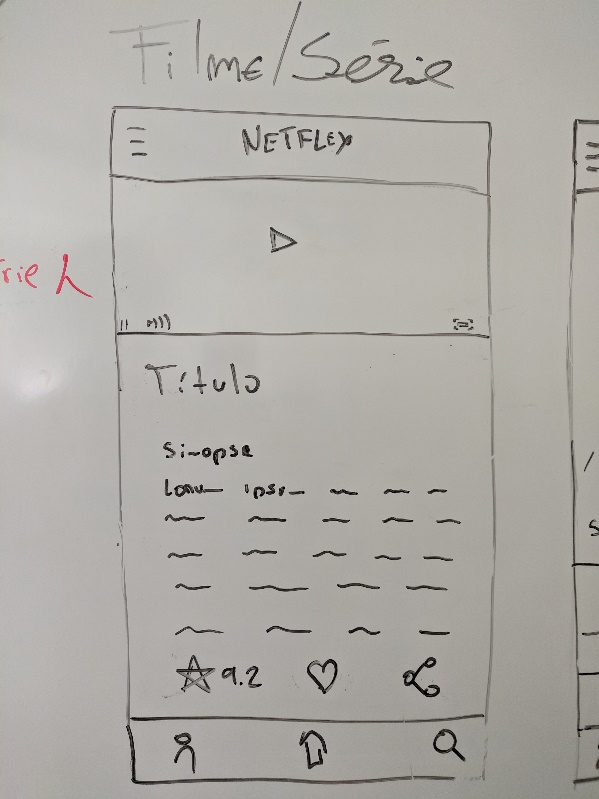 Filme/Série
NETFLEX
rie
Título
Sinopse
Lorem ipsum
9.2